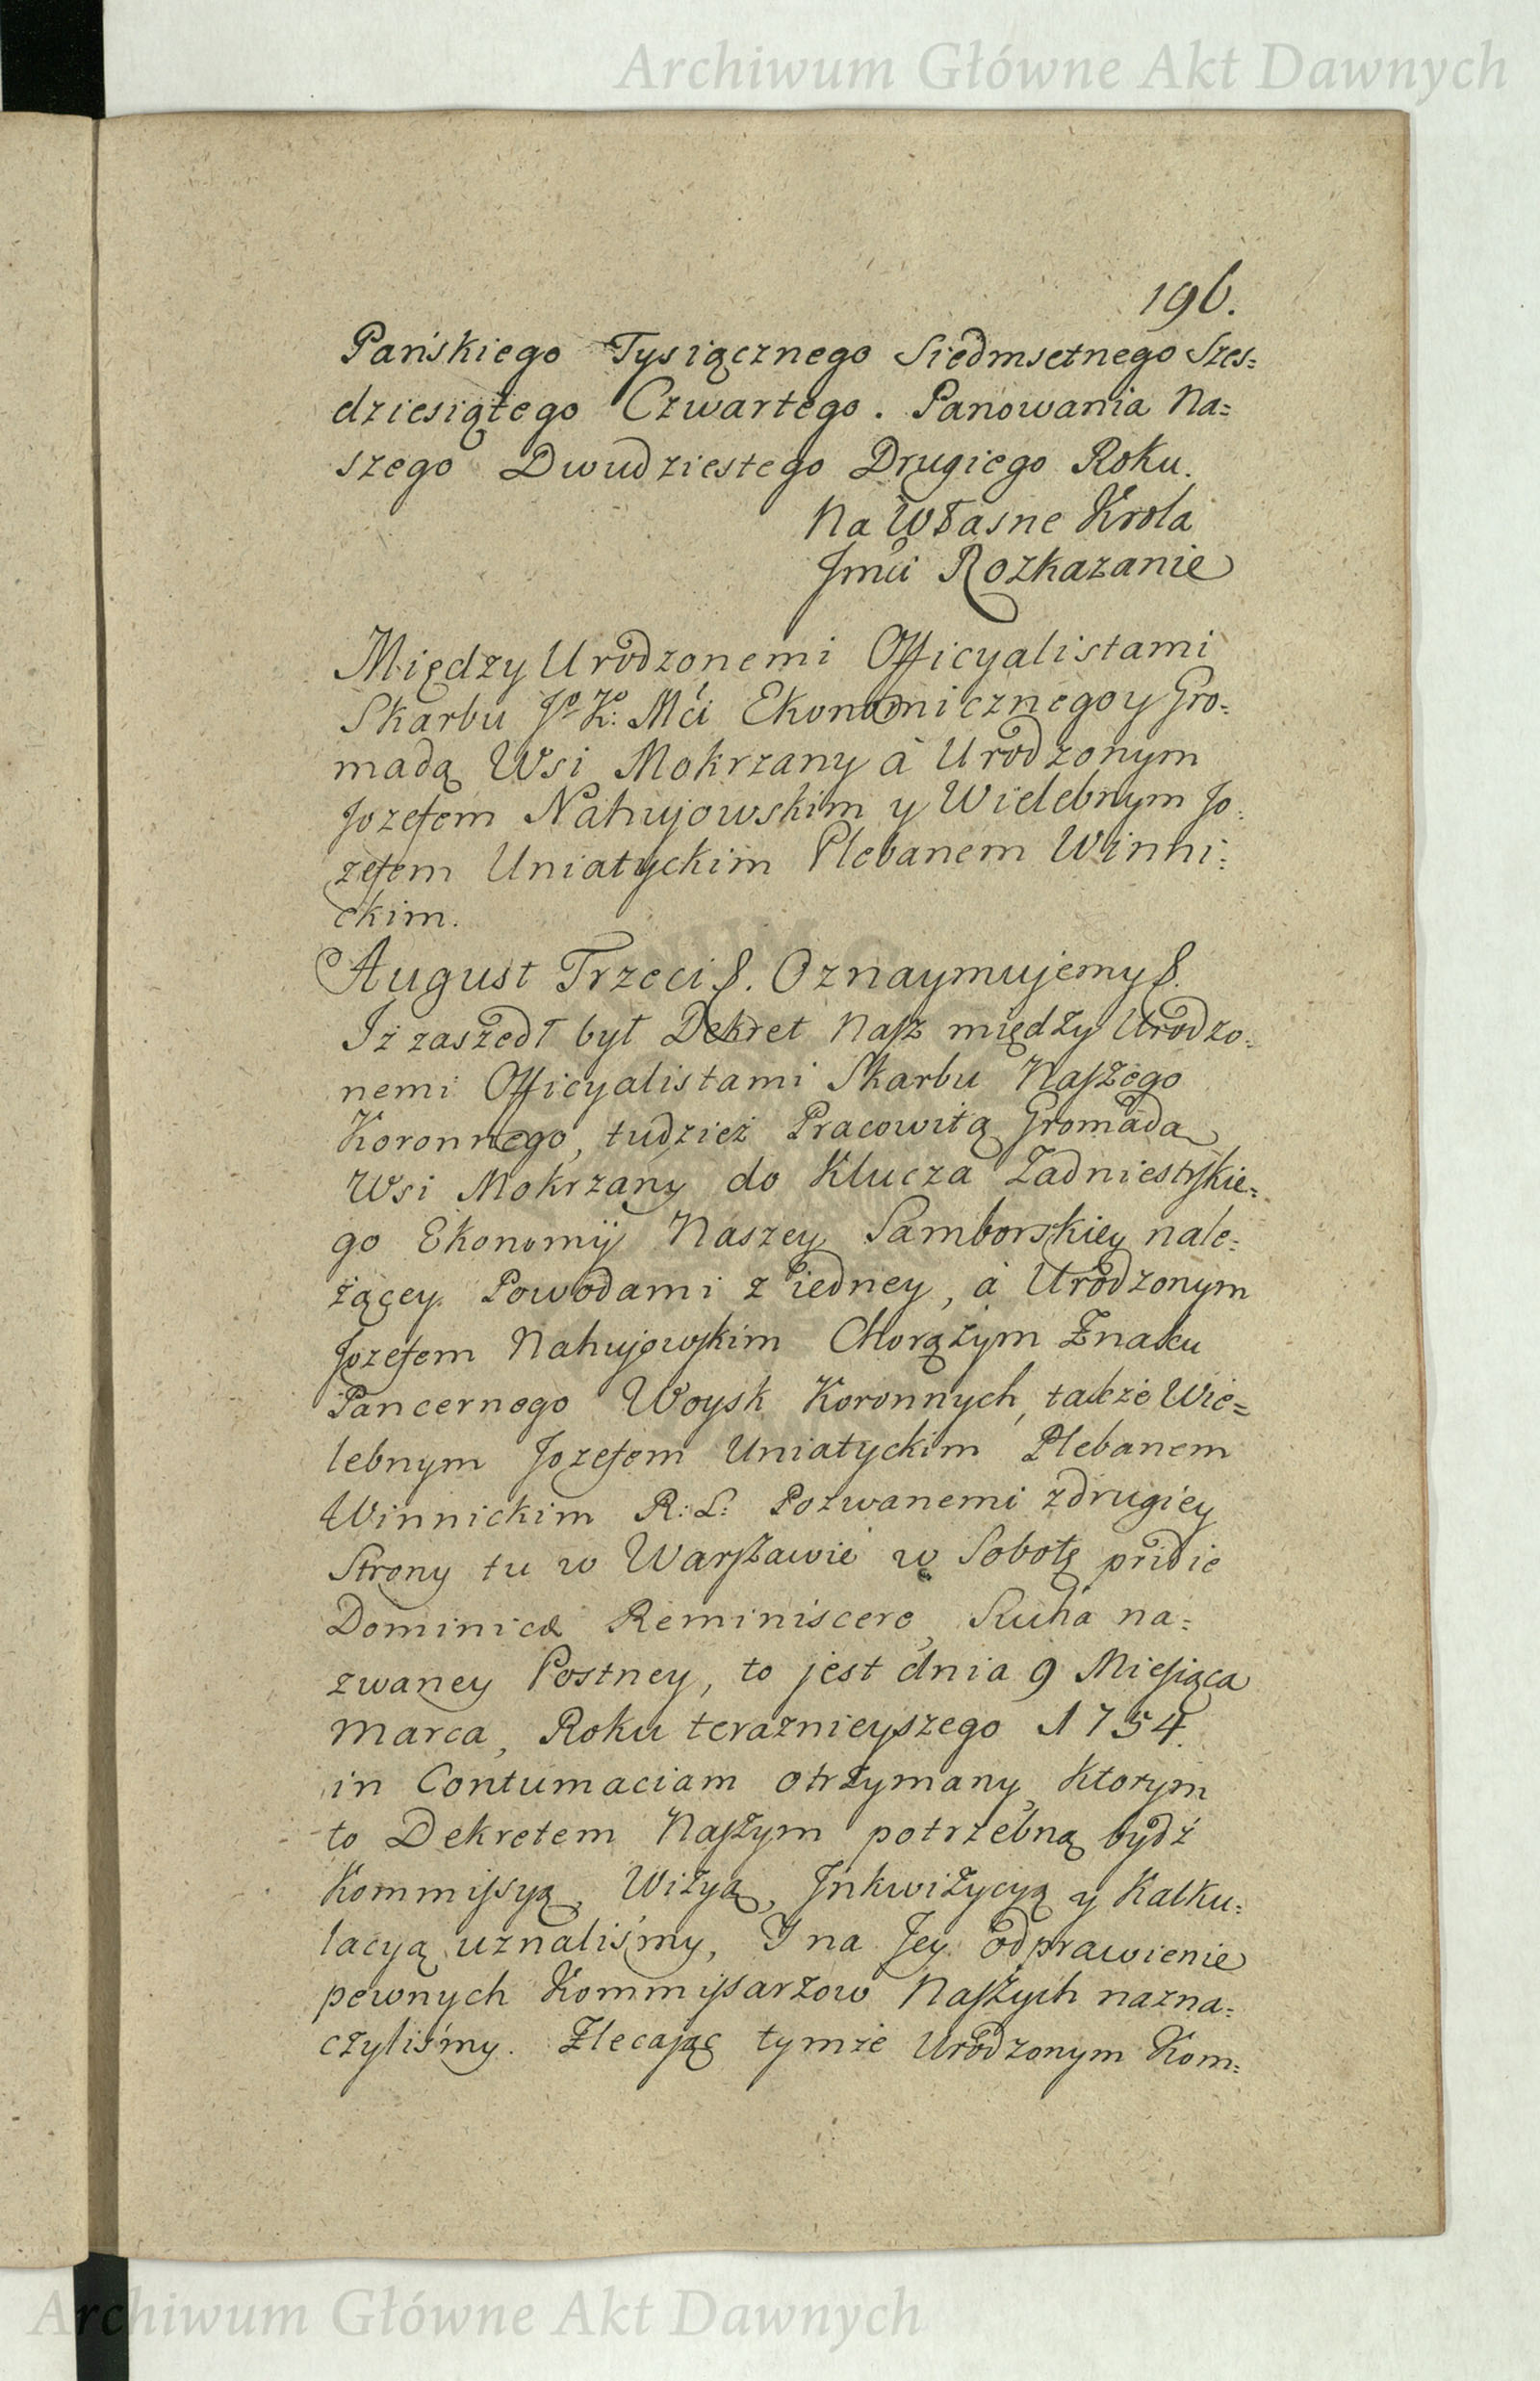 Archiwum Główne Akt Dawnych
196.
Pańskiego Tysiącznego Siedmsetnego Szes=
dziesiątego Czwartego. Panowania Na=
szego Dwudziestego Drugiego Roku.
Na Własne Krola
Jmći Rozkazanie
Między Urodzonemi Officyalistami
Skarbu Jo Ko: Mći Ekonomicznego y Gro=
madą Wsi Mokrzany à Urodzonym
Jozefem Nahujowskim y Wielebnym Jo=
zefem Uniatyckim Plebanem Winni=
ckim.
August Trzeci &. Oznaymujemy &.
Iż zaszedł był Dekret Nasz między Urodzo=
nemi Officyalistami Skarbu Naszego
Koronnego, tudzież Pracowitą Gromadą
Wsi Mokrzany do Klucza Zadniestrskie=
go Ekonomij Naszey Samborskiey nale=
żącey. Powodami z iedney, à Urodzonym
Jozefem Nahujowskim Chorążym Znaku
Pancernego Woysk Koronnych, także Wie=
lebnym Jozefem Uniatyckim Plebanem
Winnickim R: L: Pozwanemi z drugiey
Strony tu w Warszawie w Sobotę pridie
Dominicæ Reminiscere, Suha na=
zwaney Postney, to jest dnia 9 Miesiąca
Marca, Roku teraznieyszego 1754.
in Contumaciam otrzymany, Ktorym
to Dekretem Naszym potrzebną bydź
Kommissyą, Wizyą, Jnkwizycyą y Kalku=
lacyą uznaliśmy, Y na Jey odprawienie
pewnych Kommissarzow Naszych nazna=
czyliśmy. Zlecając tymże Urodzonym Kom=
Archiwum Główne Akt Dawnych